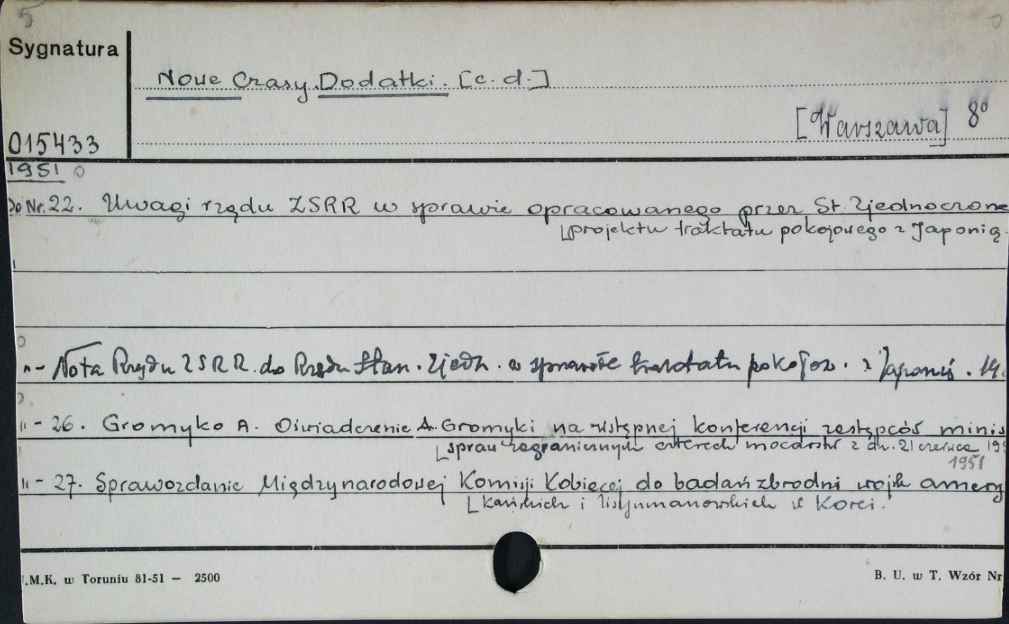 5
Sygnatura
Nowe Czasy. Dodatki. [c. d.]
[Warszawa] 8°
015433
1951
Do Nr. 22. Uwagi rządu ZSRR w sprawie opracowanego przez St. Zjednoczone
projektu traktatu pokojowego z Japonią.
"- Nota Rządu ZSRR. do Rządu Stan. Zjedn. w sprawie traktatu pokojow. z Japonią. 19
"- 26. Gromyko A. Oświadczenie A. Gromyki na wstępnej konferencji zastępców minis
spraw zagranicznych czterech mocarstw z dn. 21 czerwca 195
1951
"- 27. Sprawozdanie Międzynarodowej Komisji Kobiecej do badań zbrodni wojsk amery
kańskich i lisynmanowskich w Korei.
U.M.K. w Toruniu 81-51 — 2500
B. U. w T. Wzór Nr